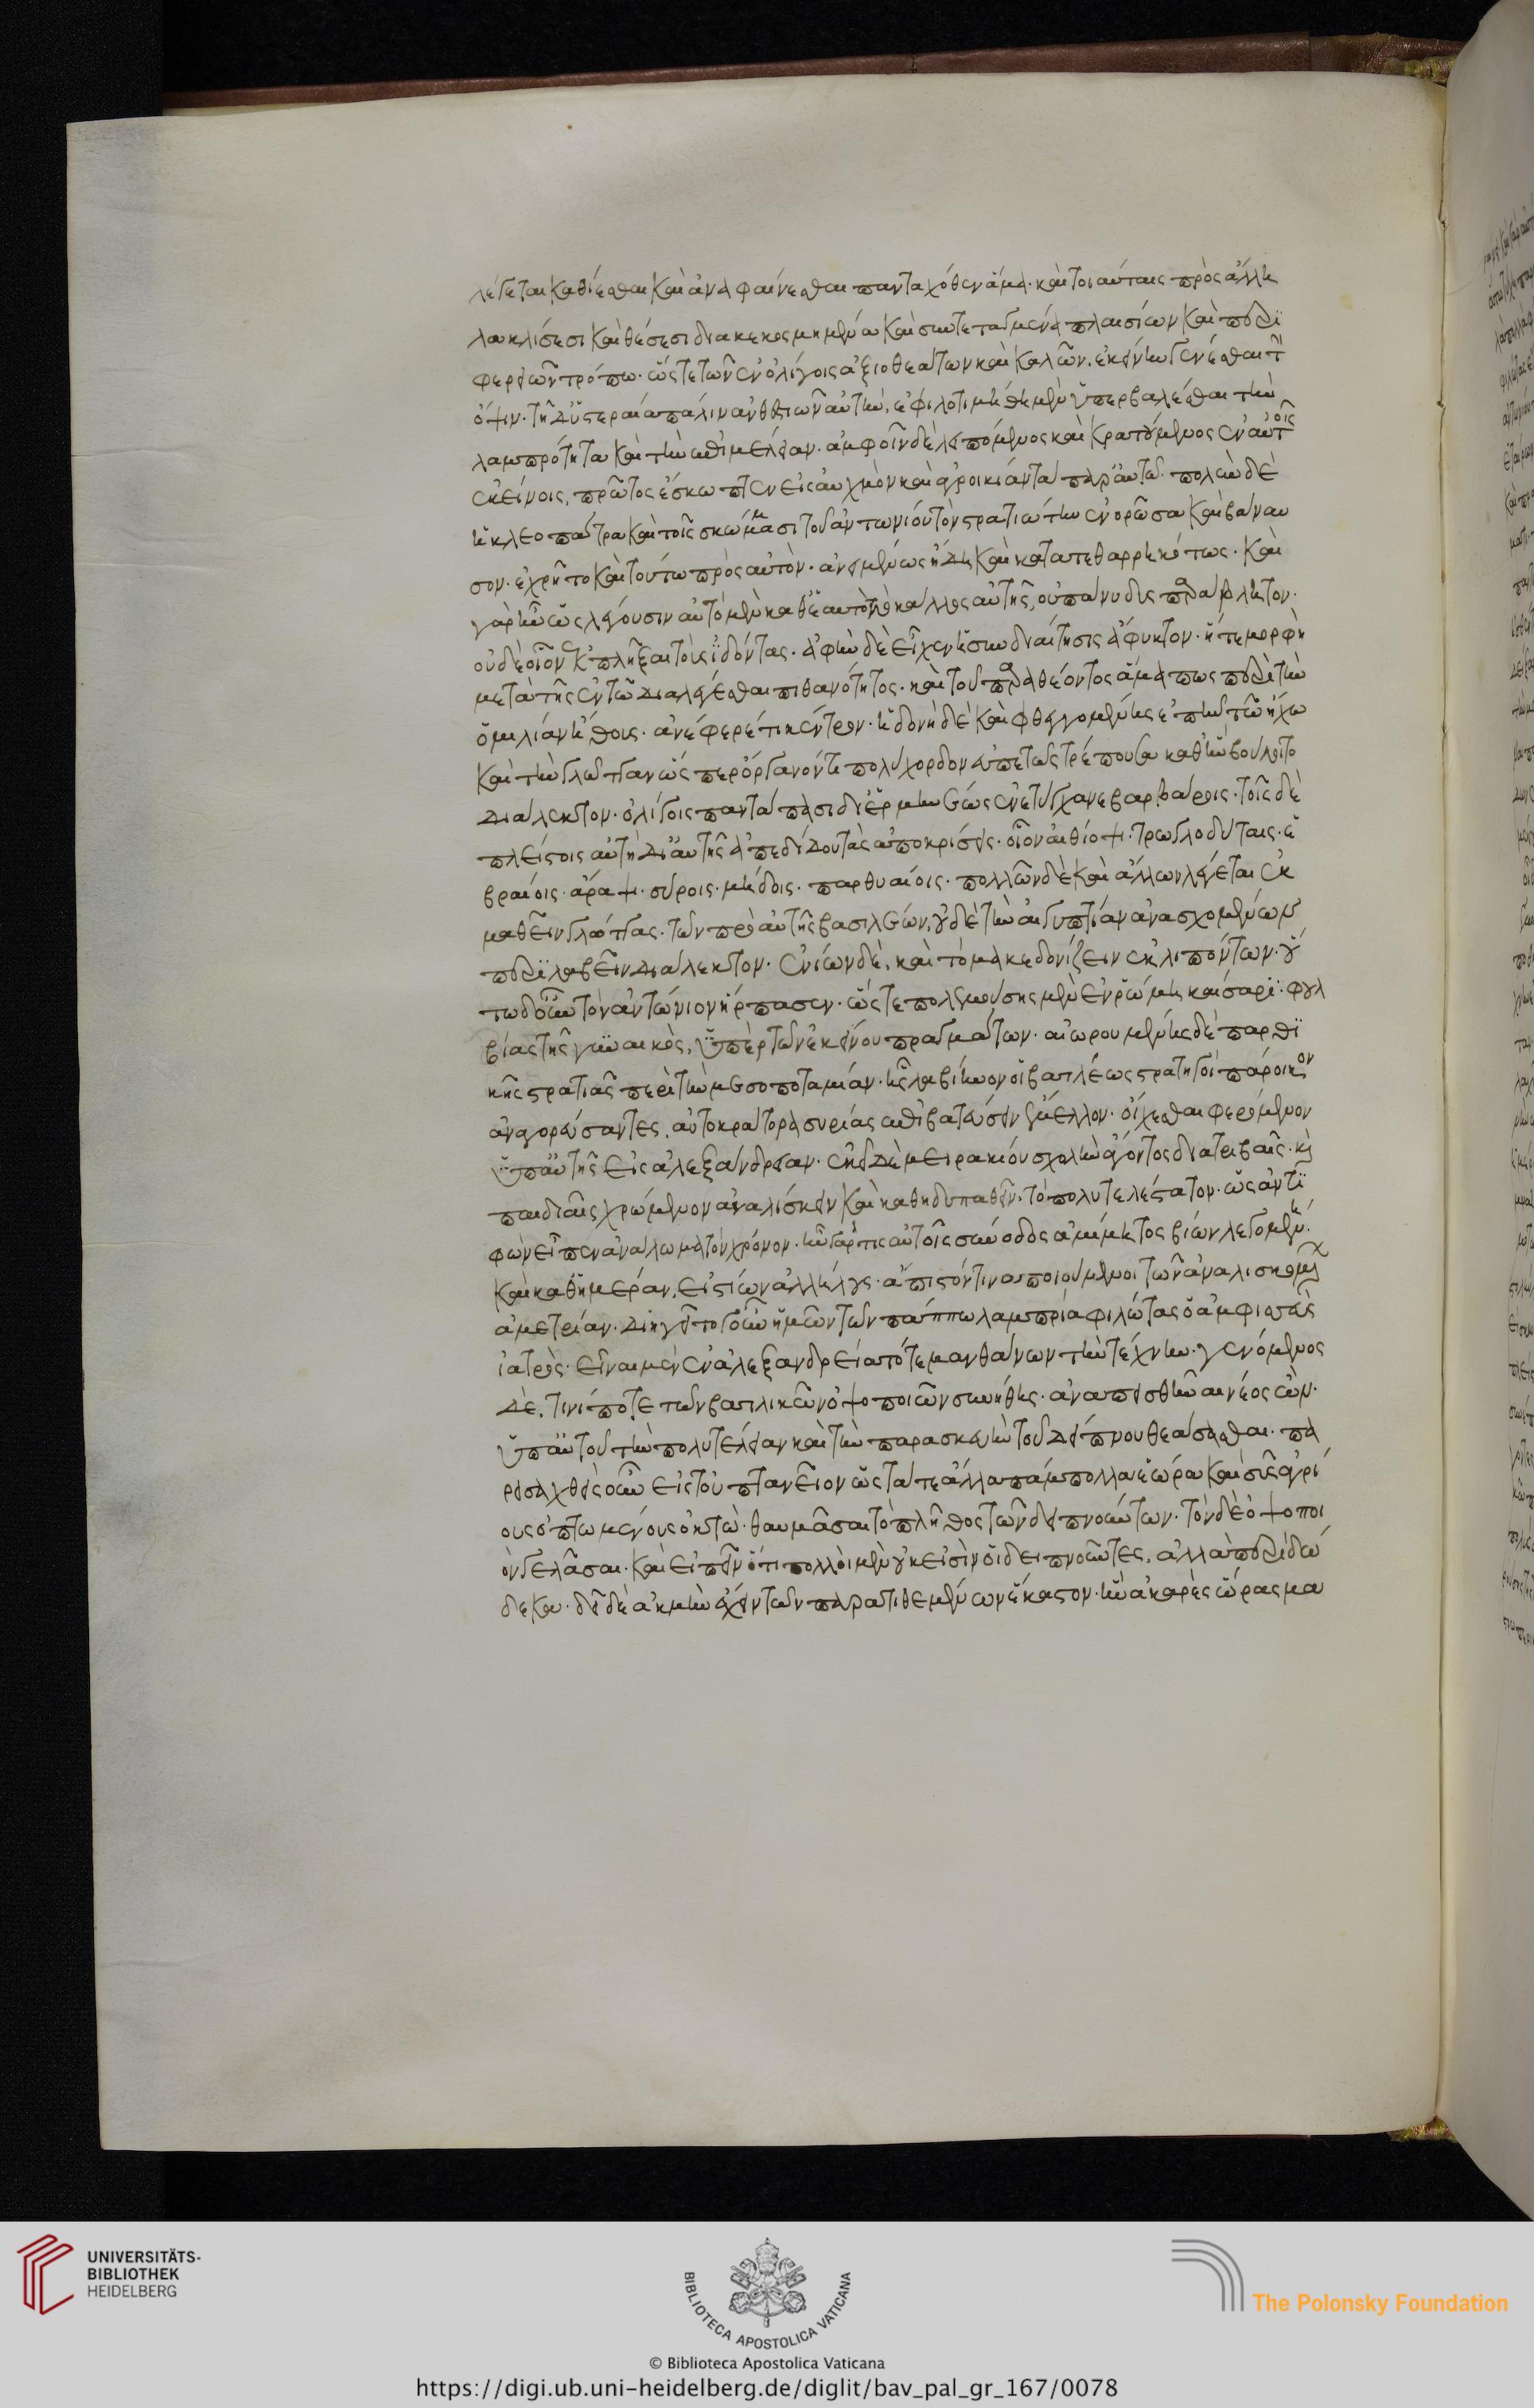 λέγεται καθίεσθαι καὶ ἀναφαίνεσθαι πανταχόθεν ἅμα· καὶ τοιαύταις πρὸς ἄλλη
λα κλίσεσι καὶ θέσεσι διακεκοσμημένα καὶ συντεταγμένα πλαισίων καὶ περι
φερειῶν τρόπω· ὥστε τῶν ἐν ὀλίγοις ἀξιοθεάτων καὶ καλῶν, ἐκείνην γενέσθαι τὴν
ὄψιν· τῆ δ' ὑστεραία πάλιν ἀνθεστιῶν αὐτὴν, ἐφιλοτιμήθη μὲν ὑπερβαλέσθαι τὴν
λαμπρότητα καὶ τὴν ἐπιμέλειαν· ἀμφοῖν δὲ λειπόμενος καὶ κρατούμενος ἐν αὐτοῖς
ἐκείνοις, πρῶτος ἔσκωπτεν εἰς αὐχμὸν καὶ ἀγροικίαν τὰ παρ' αὐτῶ· πολὺν δὲ
ἡ κλεοπάτρα καὶ τοῖς σκώμμασι τοῦ ἀντωνίου τὸν στρατιώτην ἐνορῶσα καὶ βάναυ
σον· ἐχρῆτο καὶ τούτω πρὸς αὐτὸν· ἀνειμένως ἤδη καὶ κατατεθαρρηκότως· καὶ
γὰρ ἦν ὡς λέγουσιν αὐτὸ μὲν καθ' αὑτὸ τὸ κάλλος αὐτῆς, οὐ πάνυ δυσπαράβλητον·
οὐδὲ οἷον ἐκπλῆξαι τοὺς ἰδόντας· ἁφὴν δὲ εἶχεν ἡ συνδιαίτησις ἄφυκτον· ἥ τε μορφὴ
μετὰ τῆς ἐν τῶ διαλέγεσθαι πιθανότητος· καὶ τοῦ παραθέοντος ἅμα πως περὶ τὴν
ὁμιλίαν ἤθους· ἀνέφερέ τι κέντρον· ἡδονὴ δὲ καὶ φθεγγομένης ἐπῆν τῶ ἤχω
καὶ τὴν γλῶτταν ὥσπερ ὄργανόν τι πολύχορδον εὐπετῶς τρέπουσα καθ' ἣν βούλοιτο
διάλεκτον· ὀλίγοις παντάπασι δι' ἑρμηνέως ἐνετύγχανε βαρβάροις· τοῖς δὲ
πλείστοις αὐτὴ δι' αὑτῆς ἀπεδίδου τὰς ἀποκρίσεις· οἷον αἰθίοψι· τρωγλοδύταις· ἑ
βραίοις· ἄραψι· σύροις· μήδοις· παρθυαίοις· πολλῶν δὲ καὶ ἄλλων λέγεται ἐκ
μαθεῖν γλώττας· τῶν πρὸ αὐτῆς βασιλέων, οὐδὲ τὴν αἰγυπτίαν ἀνασχομένων
περιλαβεῖν διάλεκτον· ἐνίων δὲ, καὶ τὸ μακεδονίζειν ἐκλιπόντων· οὕ
τω δ' οὖν τὸν ἀντώνιον ἥρπασεν· ὥστε πολεμούσης μὲν ἐν ῥώμη καίσαρι· φουλ
βίας τῆς γυναικὸς, ὑπὲρ τῶν ἐκείνου πραγμάτων· αἰωρουμένης δὲ παρθι
κῆς στρατιᾶς περὶ τὴν μεσοποταμίαν· ἧς λαβίηνον οἱ βασιλέως στρατηγοὶ παρθικὸν
ἀναγορεύσαντες, αὐτοκράτορα συρίας ἐπιβατεύσειν ἔμελλον· οἴχεσθαι φερόμενον
ὑπ' αὐτῆς εἰς ἀλεξάνδρειαν· ἐκεῖ δὲ μειρακίου σχολὴν ἄγοντος διατριβαῖς· καὶ
παιδιαῖς χρώμενον ἀναλίσκειν καὶ καθηδυπαθεῖν· τὸ πολυτελέστατον· ὡς ἀντι
φῶν εἶπεν ἀνάλωμα τὸν χρόνον· ἦν γάρ τις αὐτοῖς σύνοδος ἀμιμήτος βίων λεγομένη·
καὶ καθ' ἡμέραν, εἱστίων ἀλλήλους· ἄπιστόν τινα ποιούμενοι τῶν ἀναλισκομένων
ἀμετρίαν· διηγεῖτο γοῦν ἡμῶν τῶν πάππω λαμπρία φιλώτας ὁ ἀμφισσεὺς
ἰατρὸς· εἶναι μὲν ἐν ἀλεξανδρεία τότε μανθάνων τὴν τέχνην· γενόμενος
δέ, τινί ποτε τῶν βασιλικῶν ὀψοποιῶν συνήθης· ἀναπεισθῆναι νέος ὢν·
ὑπ' αὐτοῦ τὴν πολυτέλειαν καὶ τὴν παρασκευὴν τοῦ δείπνου θεάσασθαι· πα
ρεισαχθεὶς οὖν εἰς τοὐπτανεῖον ὡς τά τε ἄλλα πάμπολλα ἑώρα καὶ σῦς ἀγρί
ους ὀπτωμένους ὀκτὼ· θαυμᾶσαι τὸ πλῆθος τῶν δειπνούντων· τὸν δὲ ὀψοποι
ὸν γελάσαι· καὶ εἰπεῖν ὅτι πολλοὶ μὲν οὐκ εἰσὶν οἱ δειπνοῦντες, ἀλλὰ περὶ δώ
δεκα· δεῖ δὲ ἀκμὴν ἔχειν τῶν παρατιθεμένων ἕκαστον· ἣν ἀκαρὲς ὥρας μα
UNIVERSITÄTS-
BIBLIOTHEK
HEIDELBERG
BIBLIOTECA APOSTOLICA VATICANA
The Polonsky Foundation
© Biblioteca Apostolica Vaticana
https://digi.ub.uni-heidelberg.de/diglit/bav_pal_gr_167/0078